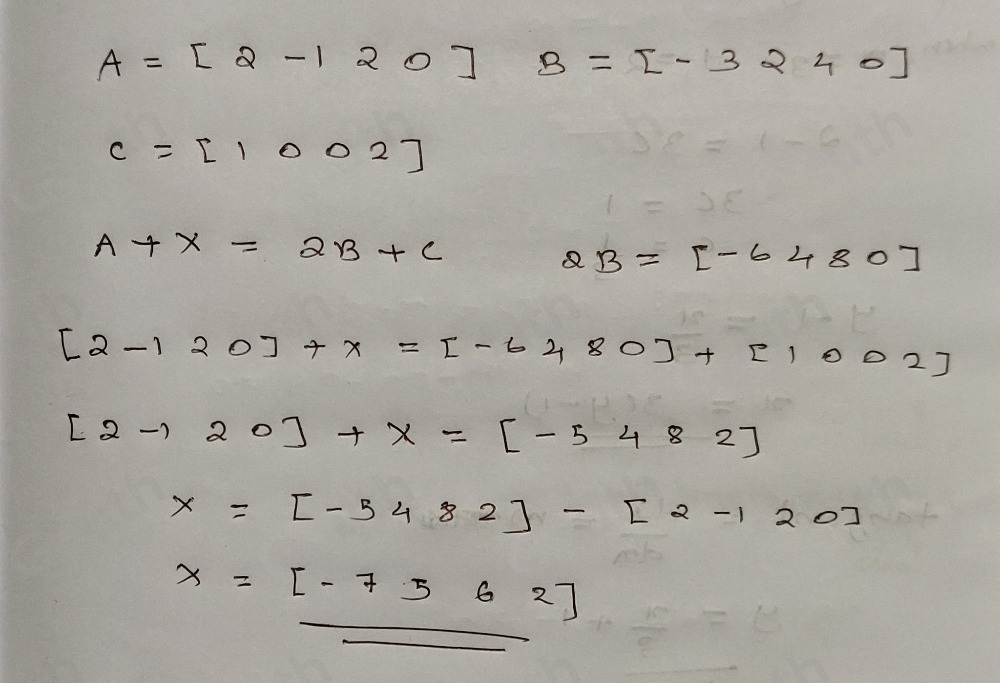 A = [ 2 -1 2 0 ] B = [ - 3 2 4 0 ]
C = [ 1 0 0 2 ]
A + X = 2B + C 2B = [ -6 4 8 0 ]
[ 2 -1 2 0 ] + X = [ -6 4 8 0 ] + [ 1 0 0 2 ]
[ 2 -1 2 0 ] + X = [ - 5 4 8 2 ]
X = [ - 5 4 8 2 ] - [ 2 -1 2 0 ]
X = [ - 7 5 6 2 ]